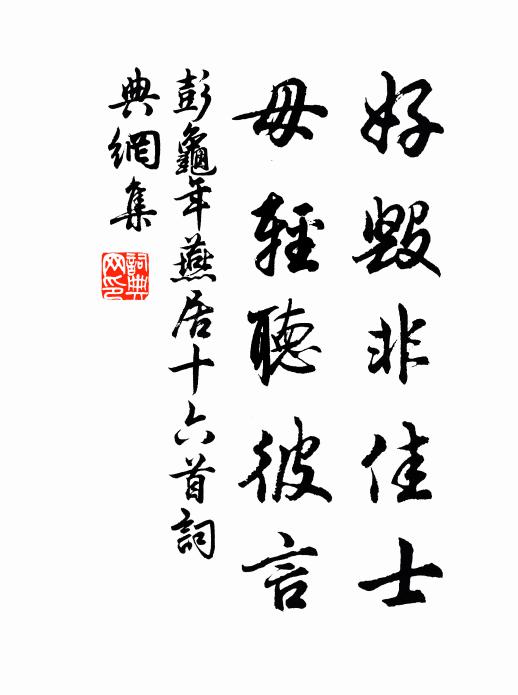 好毀非佳士
毋輕聽彼言
彭龜年燕居十六首詞
典網集
詞典網印